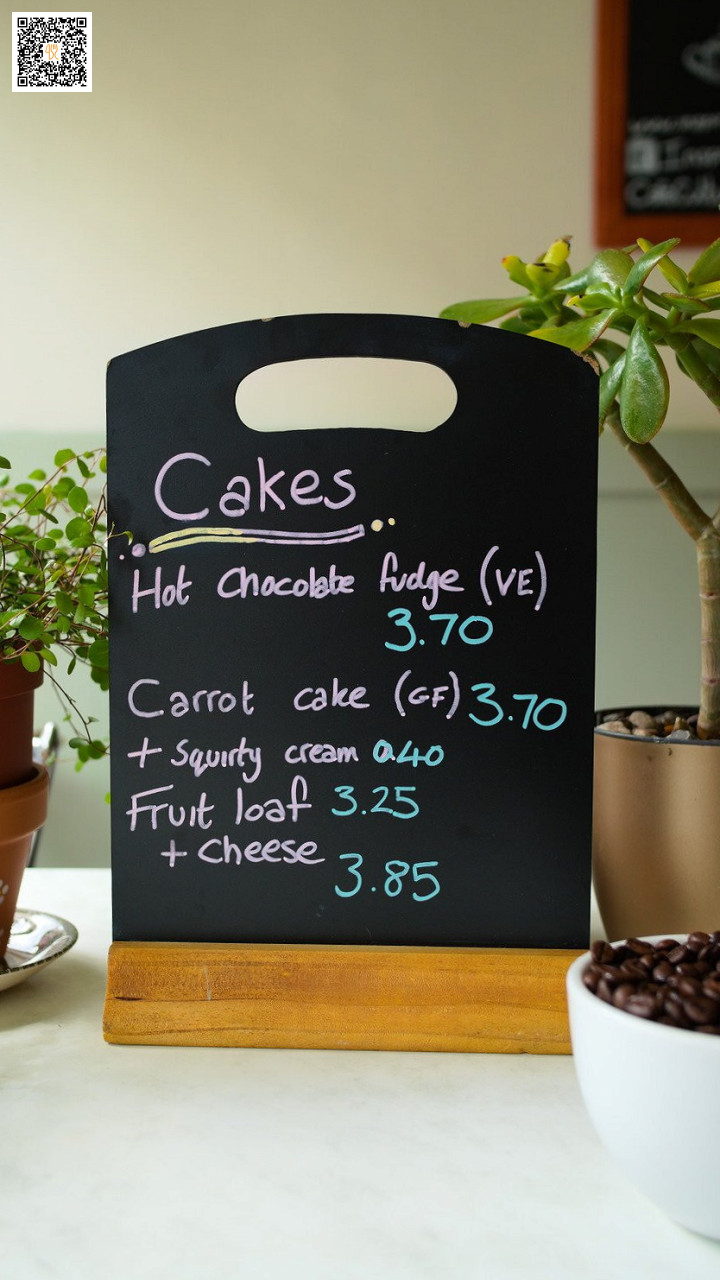 Cakes
Hot Chocolate fudge (VE)
3.70
Carrot cake (GF) 3.70
+ Squirty cream 0.40
Fruit loaf 3.25
+ cheese
3.85